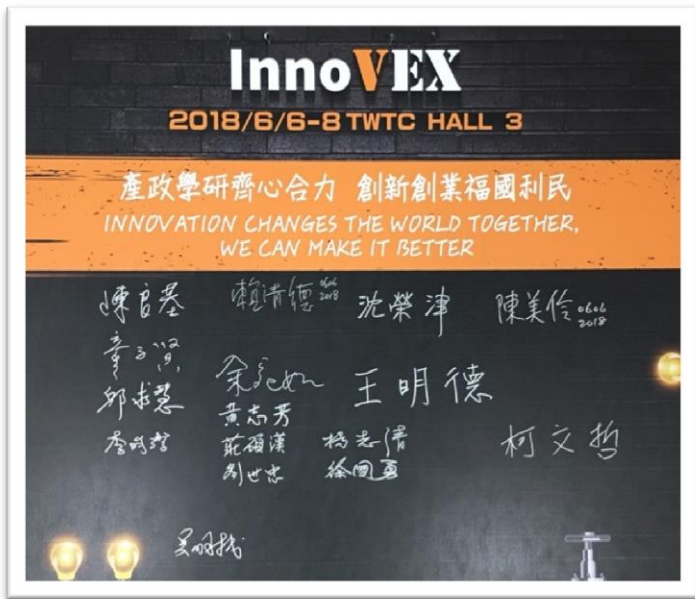 InnoVEX
2018/6/6-8 TWTC HALL 3
產政學研齊心合力 創新創業福國利民
INNOVATION CHANGES THE WORLD TOGETHER,
WE CAN MAKE IT BETTER
陳良基 賴清德 0606 2018 沈榮津 陳美伶 0606 2018
童子賢
邱求慧 余宛如 王明德
黃志芳
莊碩漢 楊志清 柯文哲
劉世忠 徐國勇
吳明機